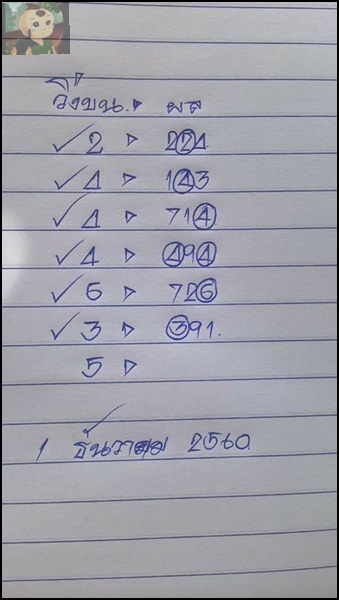 วิ่งบน. ▷ ผล
✓ 2 ▷ 224
✓ 4 ▷ 143
✓ 4 ▷ 714
✓ 4 ▷ 494
✓ 6 ▷ 726
✓ 3 ▷ 391.
5 ▷
1 ธันวาคม 2560